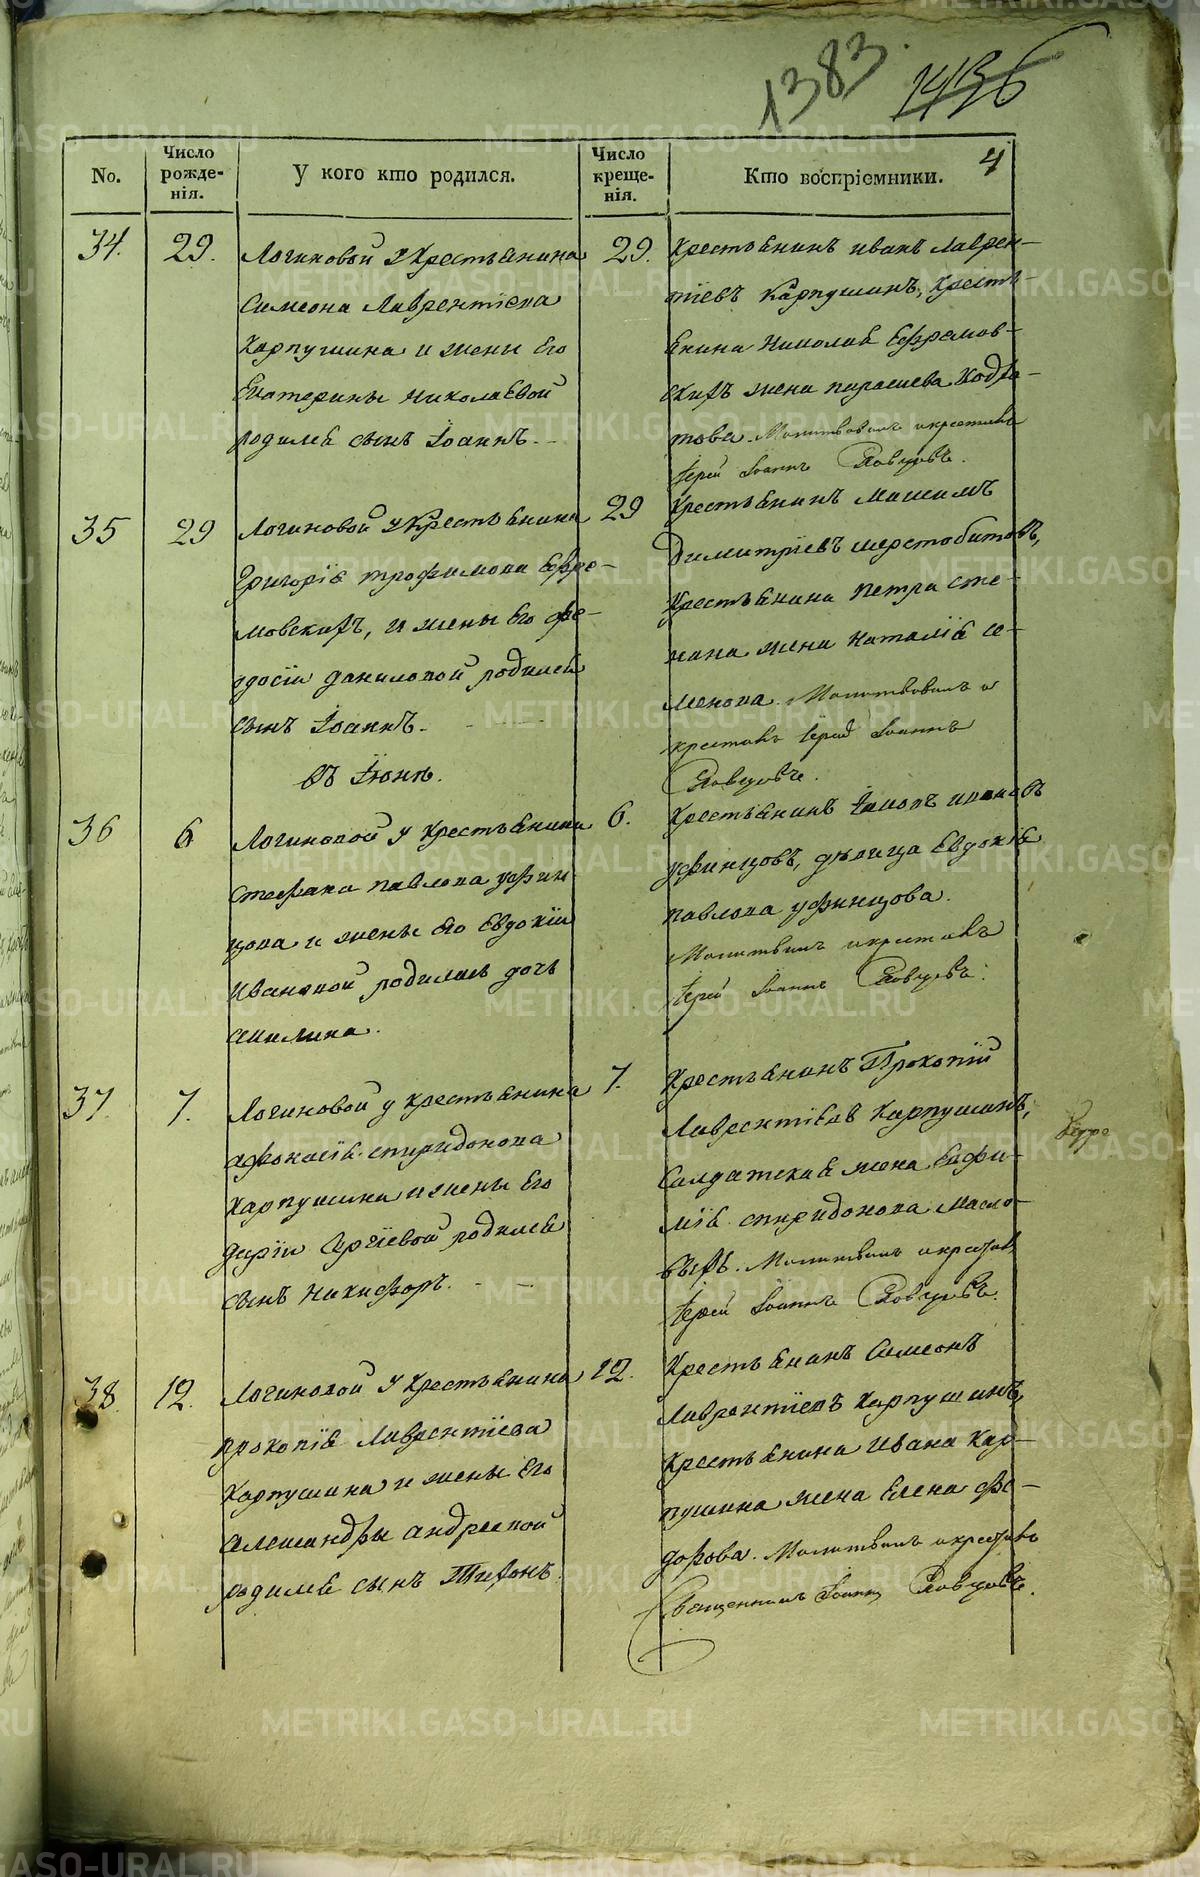 1383.
1436
4
No.
Число рожде-нія.
У кого кто родился.
Число креще-нія.
Кто воспріемники.
34.
29.
Логиновой у Крестьянина
Симеона Лаврентіева
Карпушина и жены Его
Екатерины Николаевой
родился сынъ Іоаннъ.
29.
Крестьянинъ иванъ Лаврен-
тіевъ Карпушинъ, Кресть-
янина Николая Ефремов-
скихъ жена
това. Молитвовалъ и крестилъ
Іерей Іоаннъ
35
29
Логиновой у Крестьянина
Григорія трофимова Ефре-
мовскихъ, и жены Его фе-
одосіи даниловой родился
сынъ Іоаннъ.
29
Крестьянинъ
Димитріевъ шерстобитовъ,
Крестьянина Петра
жена Наталія се-
менова. Молитвовалъ и
крестилъ Іерей Іоаннъ
въ Іюнѣ.
36
6
Логиновой у Крестьянина
Стефана павлова уфин-
цова и жены его Евдокіи
Ивановой родилась дочь
Акилина.
6.
Крестьянинъ
уфинцовъ, дѣвица Евдокія
павлова уфинцова.
Молитвовалъ и крестилъ
Іерей Іоаннъ
37
7.
Логиновой у Крестьянина
Афонасія спиридонова
Карпушина и жены Его
Дарьи Сергіевой родился
сынъ Никифоръ.
7.
Крестьянинъ Прокопій
Лаврентіевъ Карпушинъ,
Солдатская жена Евфи-
мія спиридонова Масло-
выхъ. Молитвовалъ и крестилъ
Іерей Іоаннъ
38.
12.
Логиновой у Крестьянина
прокопія Лаврентіева
Карпушина и жены Его
Александры андреевой
родился сынъ Тихонъ.
12.
Крестьянинъ Симеонъ
Лаврентіевъ Карпушинъ,
Крестьянина Ивана Кар-
пушина жена Елена фе-
дорова. Молитвовалъ и крестилъ
Священникъ Іоаннъ
METRIKI.GASO-URAL.RU